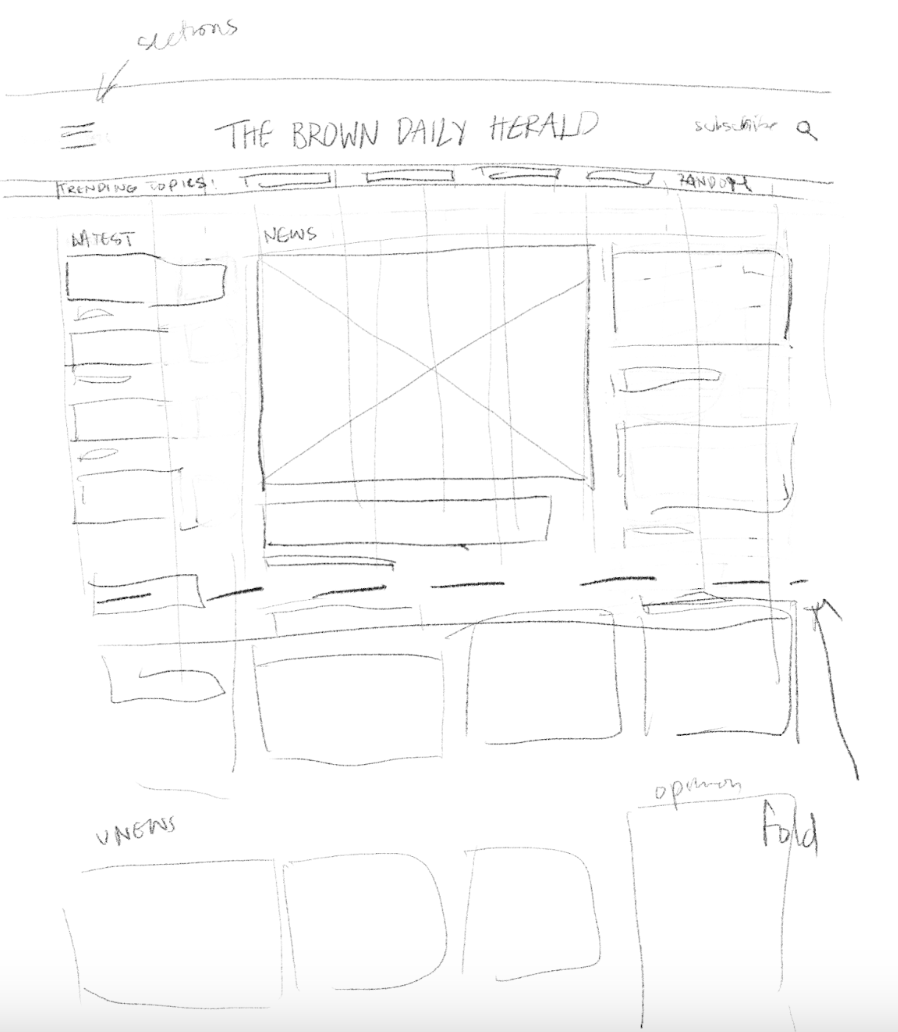 sections
THE BROWN DAILY HERALD
subscribe
TRENDING TOPICS: RANDOM
LATEST
NEWS
opinion
Fold
UNEWS